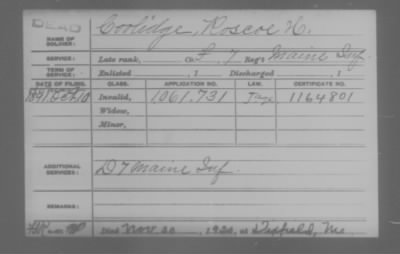 DEAD
NAME OF SOLDIER: Coolidge, Roscoe H.
SERVICE: Late rank, Co. F, 7 Reg't Maine Inf.
TERM OF SERVICE: Enlisted , 1 Discharged , 1
DATE OF FILING. CLASS. APPLICATION NO. LAW. CERTIFICATE NO.
1891 Invalid, 1061.731 1164801
Widow,
Minor,
ADDITIONAL SERVICES: D 7 Maine Inf.
REMARKS:
Died Nov. 20, 1920, at Dixfield, Me.